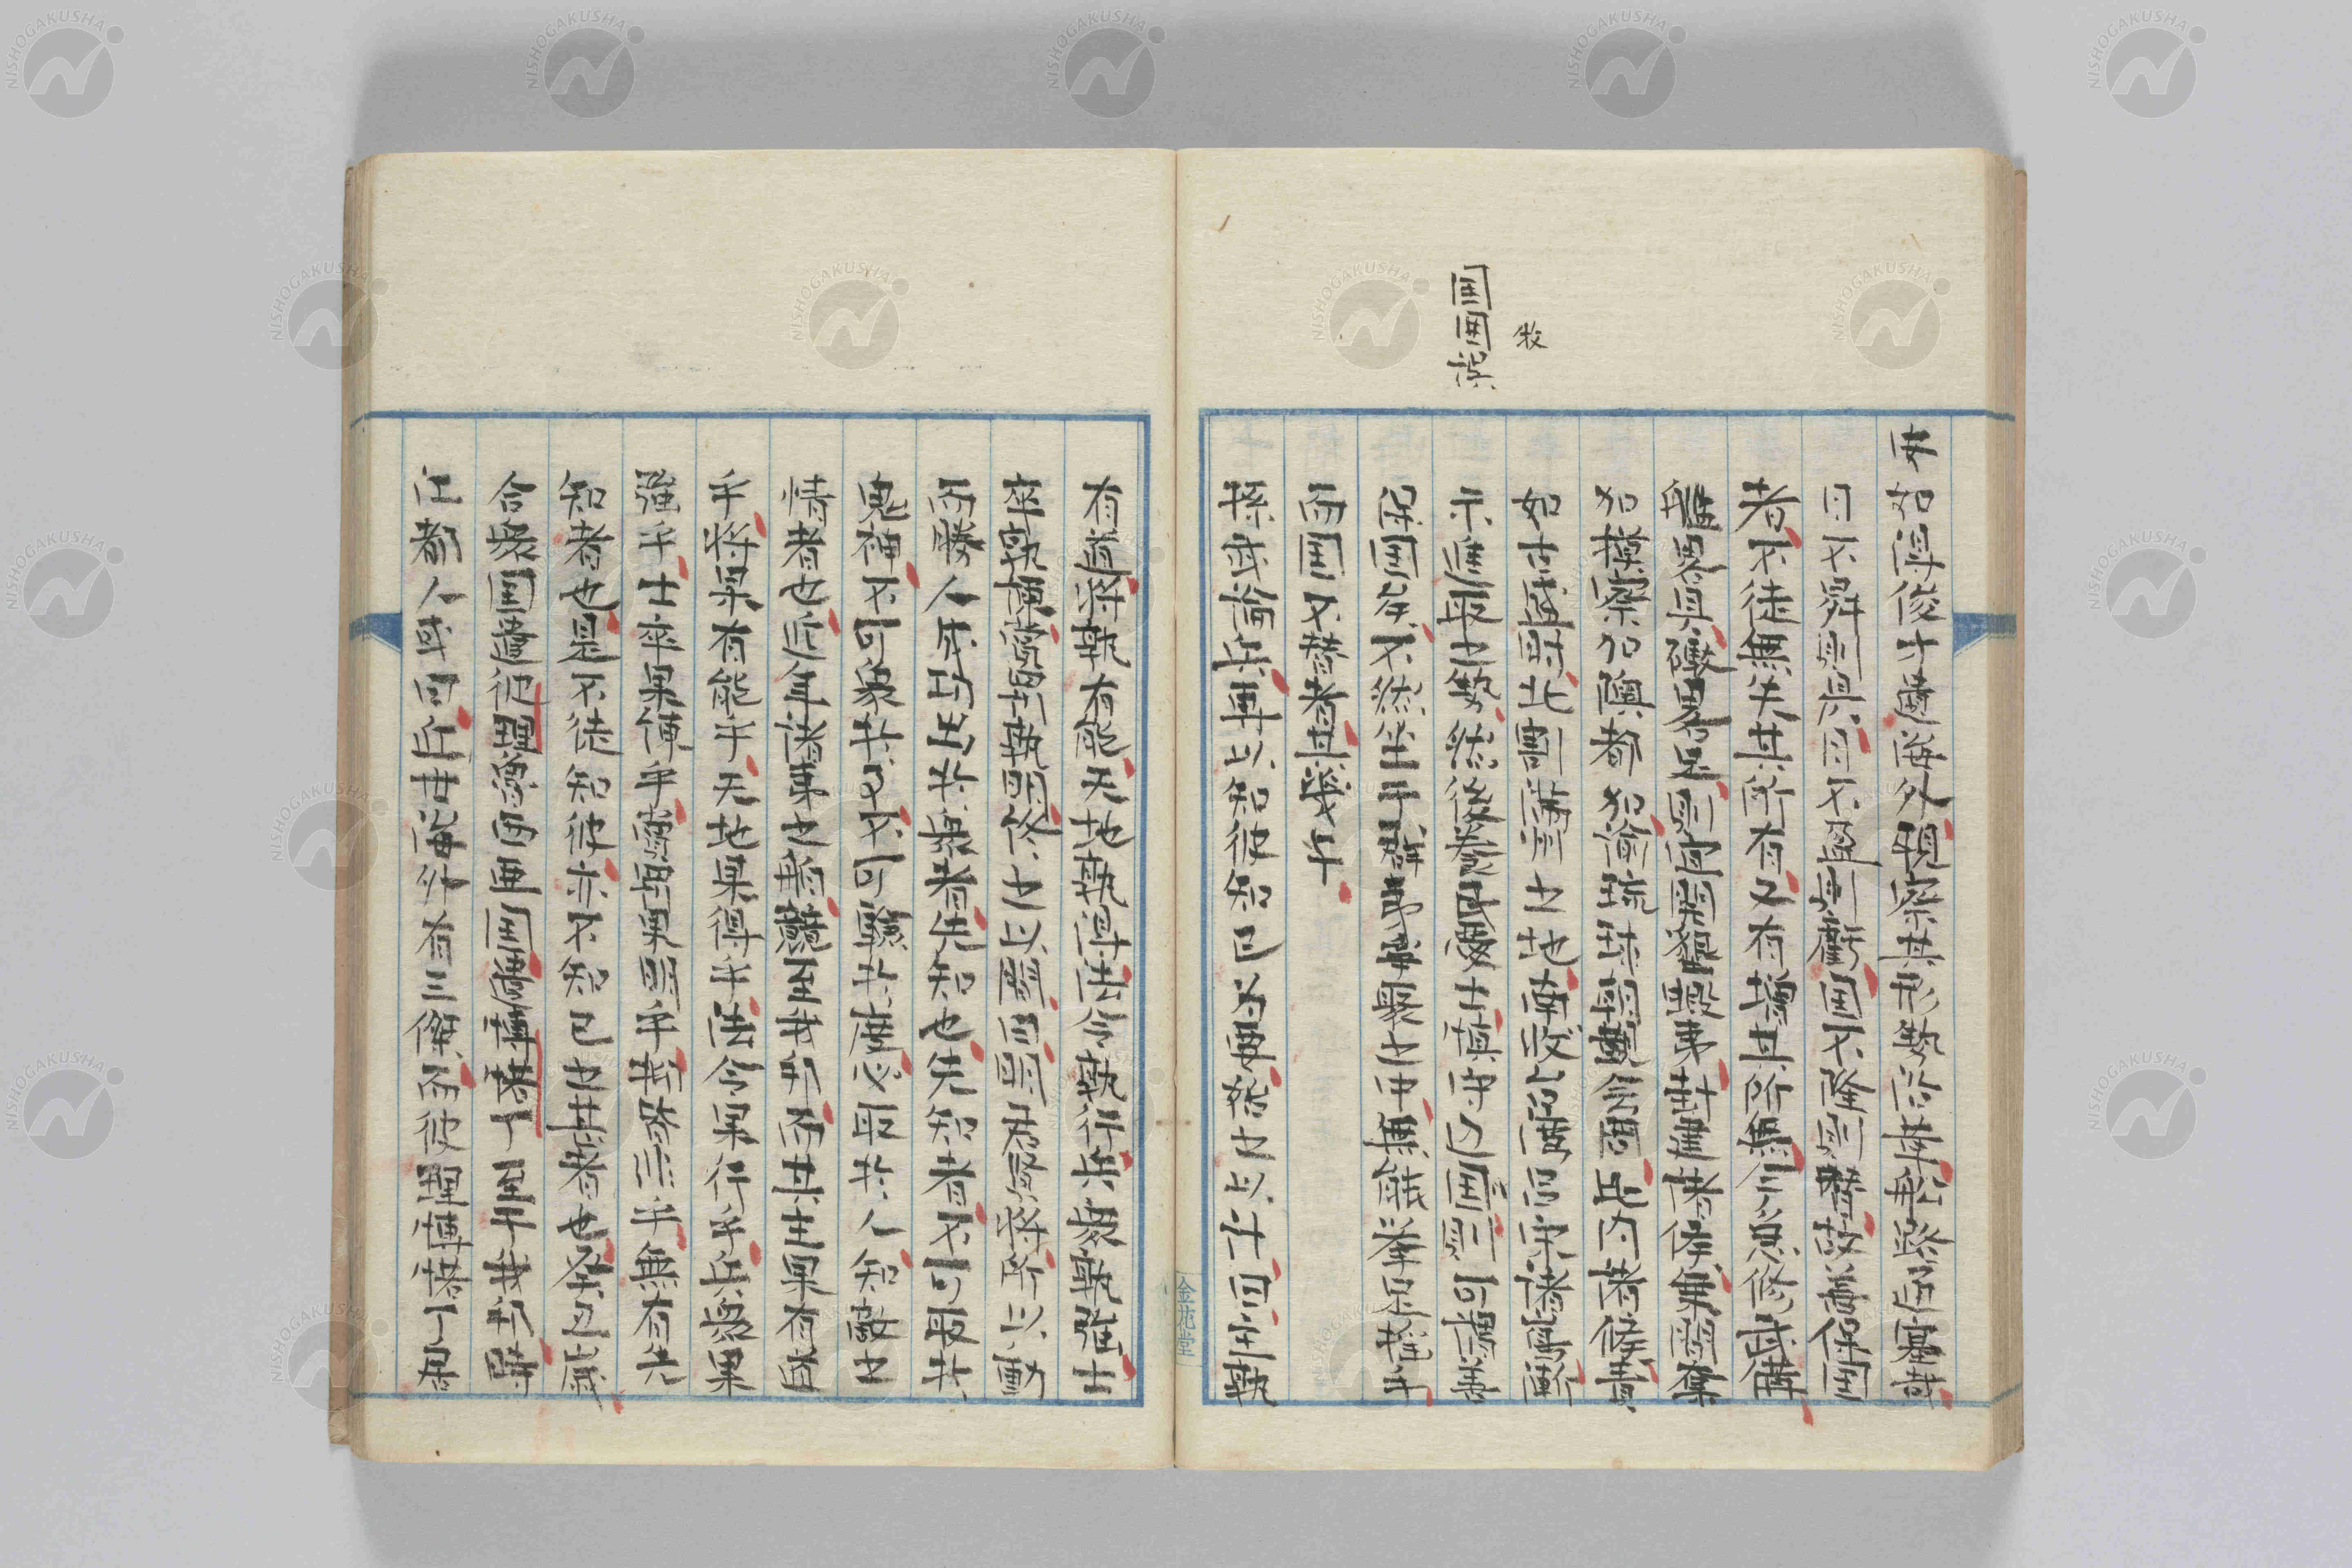 得俊才遣海外親察其形勢沿革船路
日不昇則昃月不盈則虧国不隆則替故善保国
者不徒無失其所有又有増其所無今急修武備
艦略具礮略足則宜開墾蝦夷封建諸侯乗間奪
加摸察加隩都加諭琉球朝覲会同比内諸侯責
如古盛時北割満州之地南収台湾呂宋諸島漸
国圉誤
示進取之勢然後養民愛士慎守辺国則可謂善
保国矣不然坐于群夷争聚之中無能挙足揺手
而国不替者其幾乎
孫武論兵専以知彼知己為要始之以計曰主孰
有道将孰有能天地孰得法令孰行兵衆孰強士
卒孰練賞罰孰明終之以間曰明君賢将所以動
而勝人成功出於衆者先知也先知者不可取於
鬼神不可象於事不可験於度必取於人知敵之
情者也近年諸夷之船艦至我所而其主果有道
乎将果有能乎天地果得乎法令果行乎兵衆果
強乎士卒果練乎賞罰果明乎将乎無有先
知者也是不徒知彼亦不知己之甚者也癸丑歳
合衆国遣彼理魯西亜国遣至我所請
江都人或曰近世海外有三傑而彼理居
金花堂